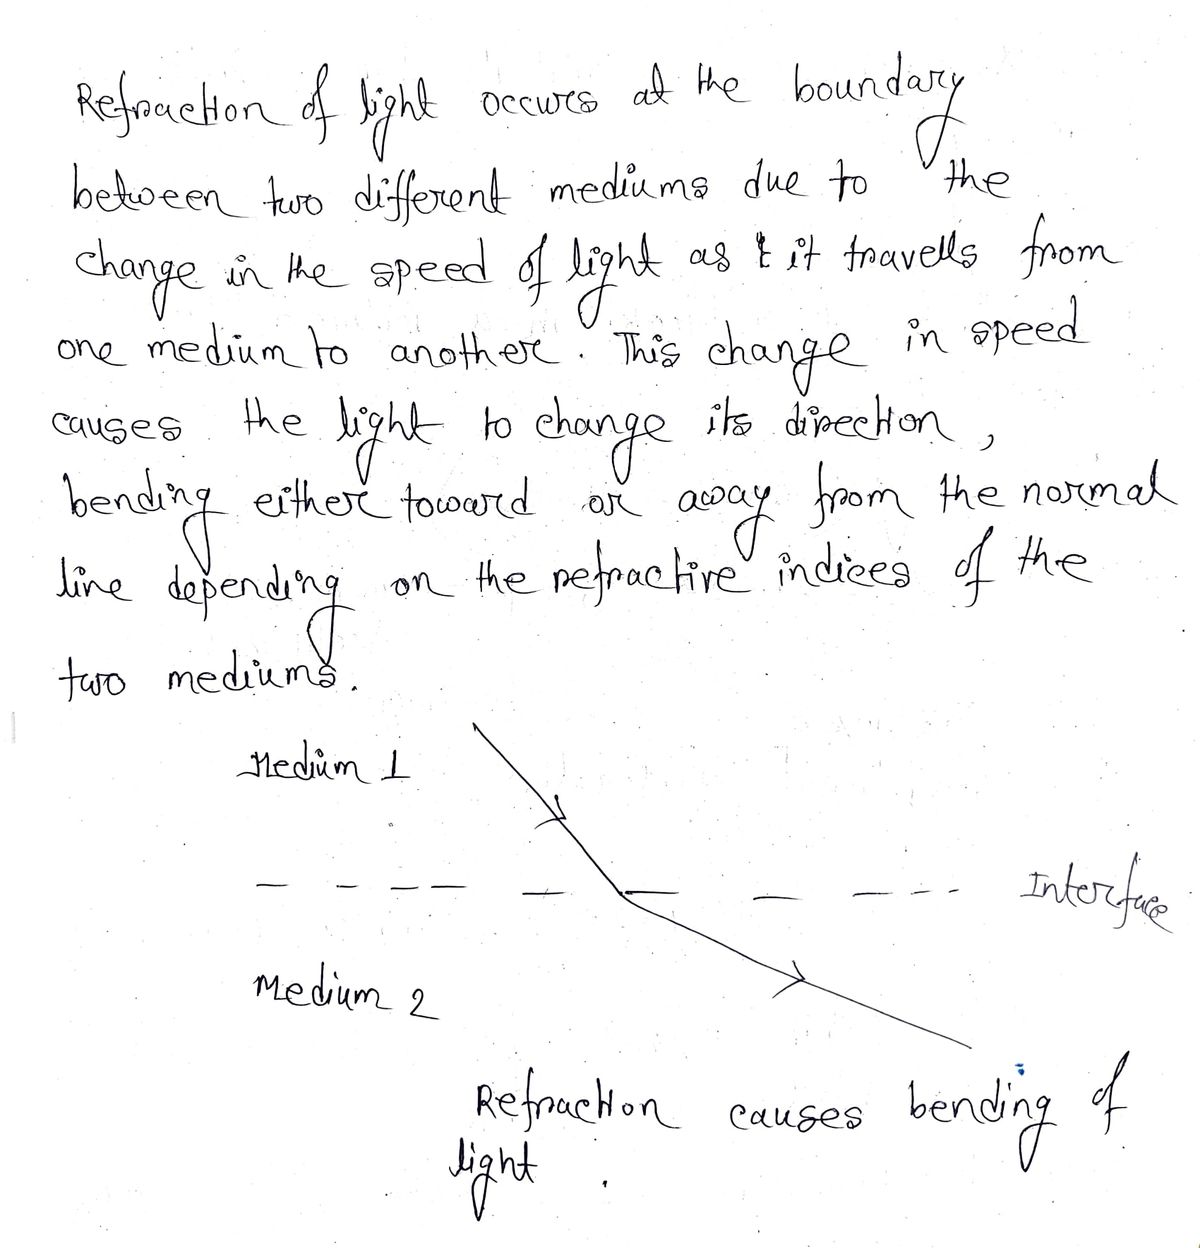 Refraction of light occurs at the boundary
between two different mediums due to the
change in the speed of light as it travells from
one medium to another. This change in speed
causes the light to change its direction,
bending either toward or away from the normal
line depending on the refractive indices of the
two mediums.
Medium 1
Interface
Medium 2
Refraction causes bending of
light.